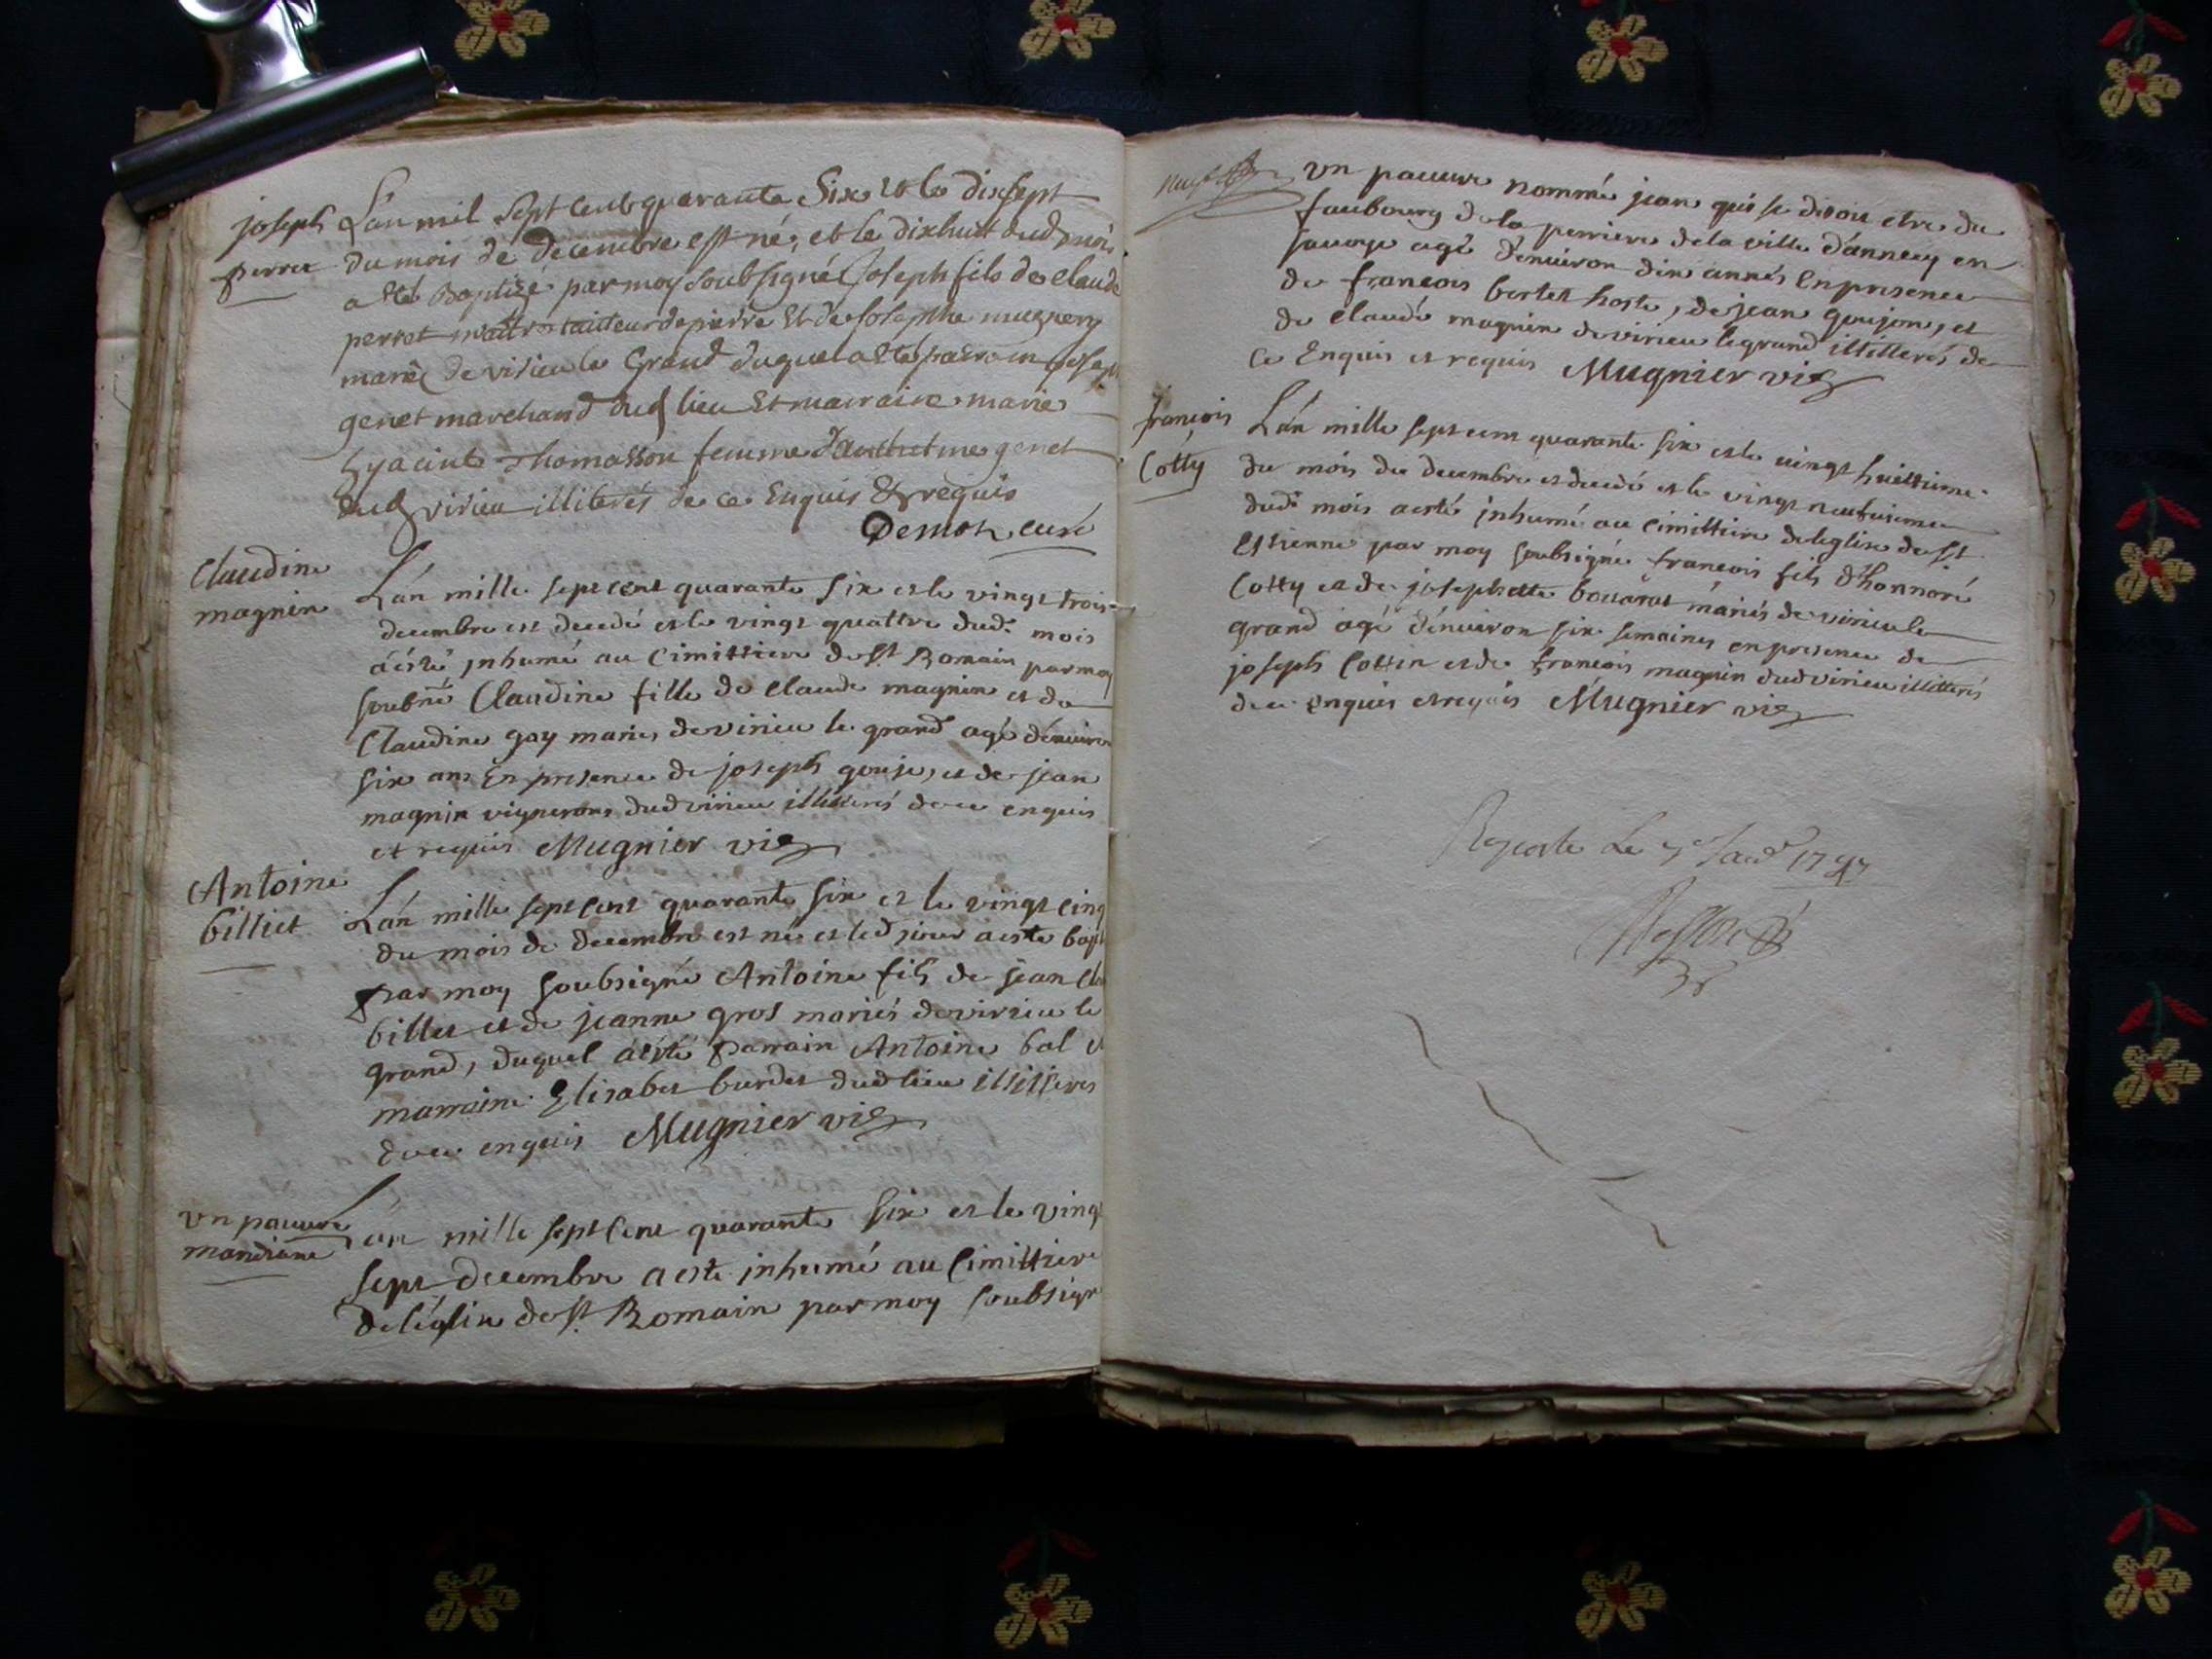 joseph
perret
L'an mil Sept Cent quarante Six et le dixsept
du mois de decembre est né, et le dixhuit dud mois
a eté Baptizé par moy soubsigné Joseph fils de claude
perret maitre tailleur de pierre Et de Josephte mugnery
mariés de virieu le Grand duquel a eté parrain Joseph
genet marchand dud lieu Et marraine marie
hyacinte Thomasson femme d'anthelme genet
dud virieu illiterés de ce Enquis Et requis
Demon curé
Claudine
magnin
L'an mille sept cent quarante six et le vingt trois
decembre est decedé et le vingt quattre dud. mois
a été inhumé au Cimittiere de St Romain par moy
soubné Claudine fille de Claude magnin et de
Claudine gay mariés de virieu le grand agé d'environ
six ans En presence de joseph goujon, et de jean
magnin vignerons dud virieu illitterés de ce enquis
et requis Mugnier vic
Antoine
billiet
L'an mille sept cent quarante six et le vingt cinq
du mois de decembre est né et led jour a esté bapt
par moy soubsigné Antoine fils de jean Cla
billet et de jeanne gros mariés de virieu le
grand, duquel a été parrain Antoine bal et
marraine Elisabet burdet dud lieu illitterés
de ce enquis Mugnier vic
un pauvre
mandiant
L'an mille sept Cent quarante six et le vingt
sept decembre a esté inhumé au Cimittiere
de l'église de St Romain par moy soubsigné
un pauvre nommé jean qui se disoit etre du
faubourg de la perriere de la ville d'annecy en
savoye agé d'environ dix annés En presence
de francois bertet hoste, de jean goujon, et
de Claude magnin de virieu le grand illitterés de
ce Enquis et requis Mugnier vic
françois
Cotty
L'an mille sept cent quarante six et le vingt huittieme
du mois de decembre est decedé et le vingt neufvieme
dud. mois a esté inhumé au cimittiere de leglise de St
Estienne par moy soubsigné francois fils d'honnoré
Cotty et de josephette bouvarat mariés de virieu le
grand agé d'environ six semaines en presence de
joseph Cottin et de francois magnin dud virieu illitterés
de ce enquis et requis Mugnier vic
Le Janv 1747